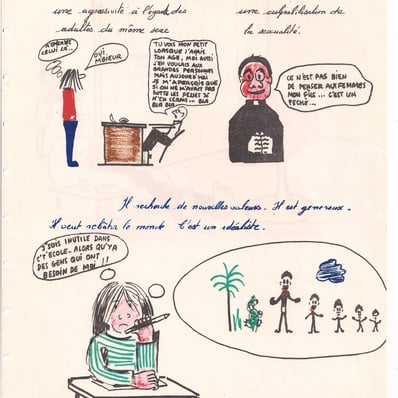 une agressivité à l'égard des
adultes du même sexe
une culpabilisation de
la sexualité.
CELUI CI...
OUI,
M'SIEUR
TU VOIS MON PETIT
LORSQUE J'AVAIS
TON AGE, MOI AUSSI
J'EN VOULAIS AUX
GRANDES PERSONNES
MAIS AUJOURD'HUI
JE M'APERÇOIS QUE
SI ON NE M'AVAIT PAS
JE N'EN SERAIS... BLA
BLA BLA...
CE N'EST PAS BIEN
DE PENSER AUX FEMMES
MON FILS... C'EST UN
PECHÉ...
Il recherche de nouvelles valeurs. Il est genereux.
Il veut rebâtir le monde C'est un idéaliste.
J'SUIS INUTILE DANS
C'T'ECOLE.. ALORS QU'YA
DES GENS QUI ONT
BESOIN DE MOI !!